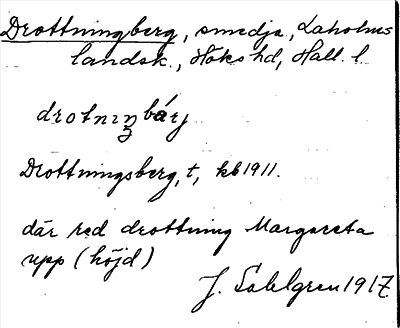 Drottningberg, smedja, Laholms
landsk., Höks hd, Hall. l.
drotnıŋbærj
Drottningsberg, t, kb 1911.
där red drottning Margareta
upp (höjd)
J. Sahlgren 1917